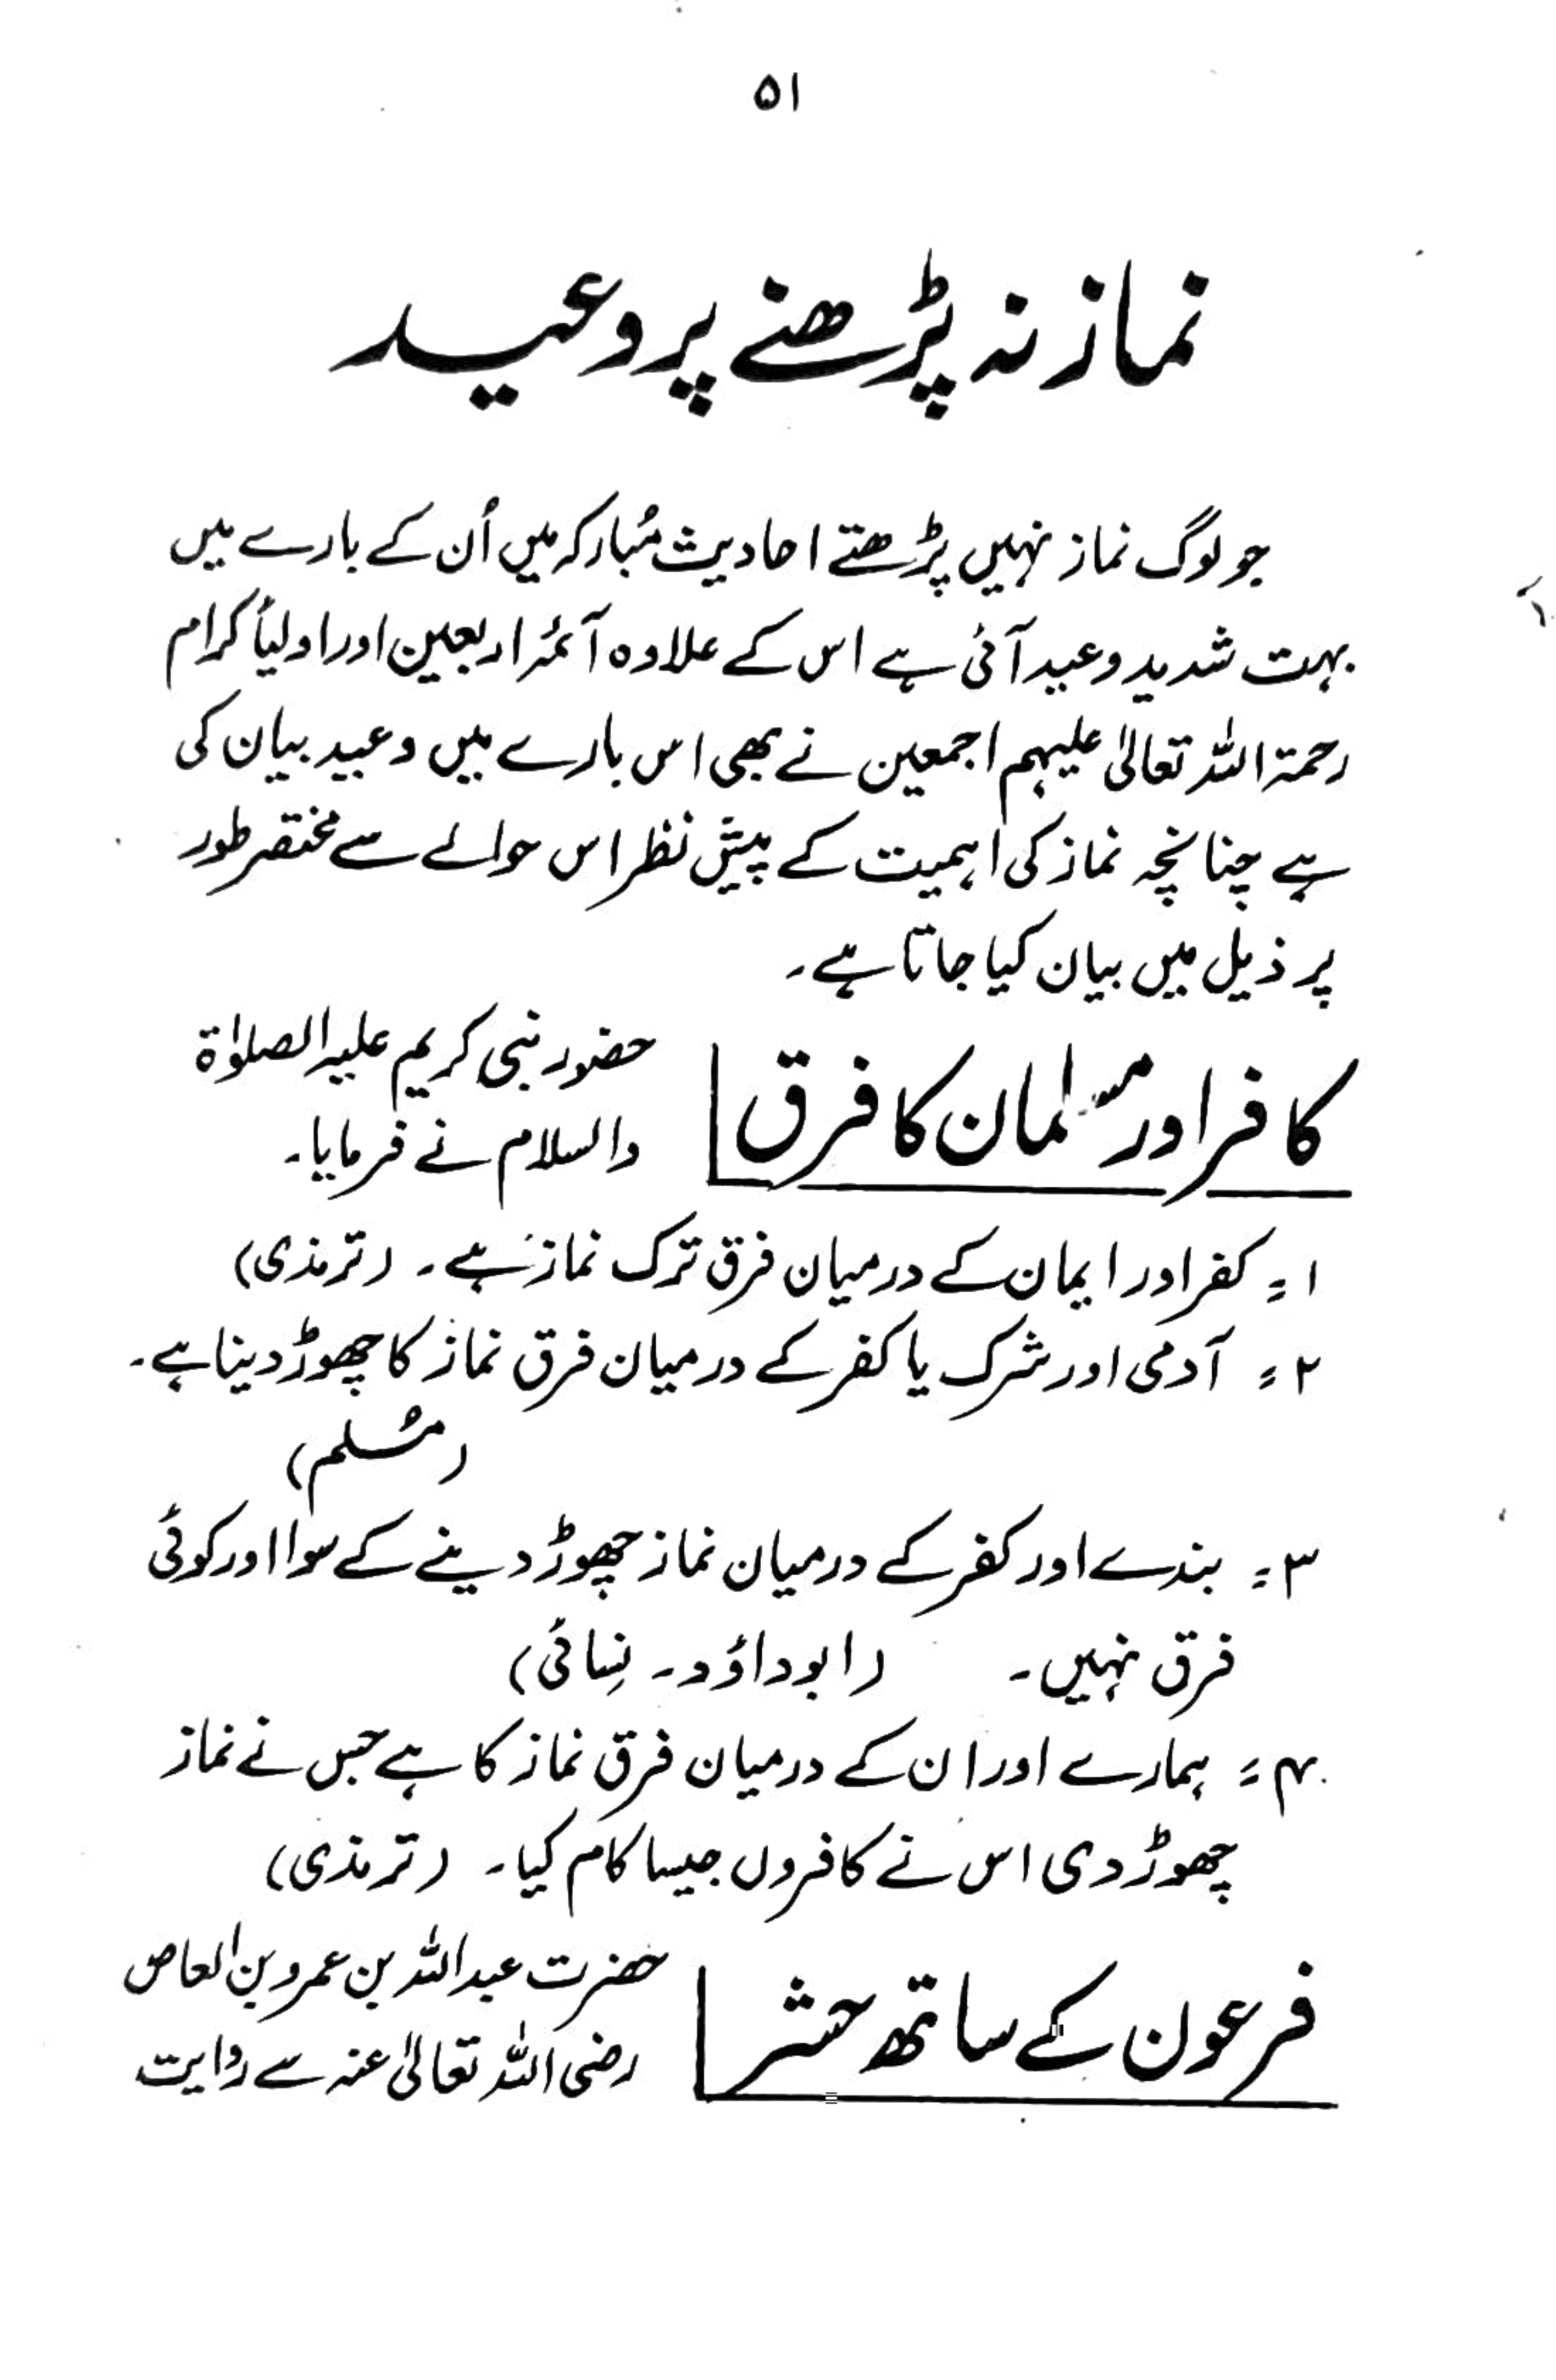 ۵۱
نماز نہ پڑھنے پر وعید
جو لوگ نماز نہیں پڑھتے احادیث مُبارکہ میں اُن کے بارے میں
بہت شدید وعید آئی ہے اس کے علاوہ آئمۂ اربعین اور اولیأ کرام
رحمۃ اللہ تعالیٰ علیہم اجمعین نے بھی اس بارے میں وعید بیان کی
ہے چنانچہ نماز کی اہمیت کے پیشِ نظر اس حوالے سے مختصر طور
پر ذیل میں بیان کیا جاتا ہے۔
کافر اور مسلمان کا فرق
حضور نبی کریم علیہ الصلوٰۃ
والسلام نے فرمایا۔
۱۔ کفر اور ایمان کے درمیان فرق ترک نماز ہے۔ (ترمذی)
۲۔ آدمی اور شرک یا کفر کے درمیان فرق نماز کا چھوڑ دینا ہے۔
(مُسلم)
۳۔ بندے اور کفر کے درمیان نماز چھوڑ دینے کے سوا اور کوئی
فرق نہیں۔ (ابوداؤد۔ نِسائی)
۴۔ ہمارے اور ان کے درمیان فرق نماز کا ہے جس نے نماز
چھوڑ دی اس نے کافروں جیسا کام کیا۔ (ترمذی)
فرعون کے ساتھ حشر
حضرت عبداللہ بن عمرو بن العاص
رضی اللہ تعالیٰ عنہ سے روایت